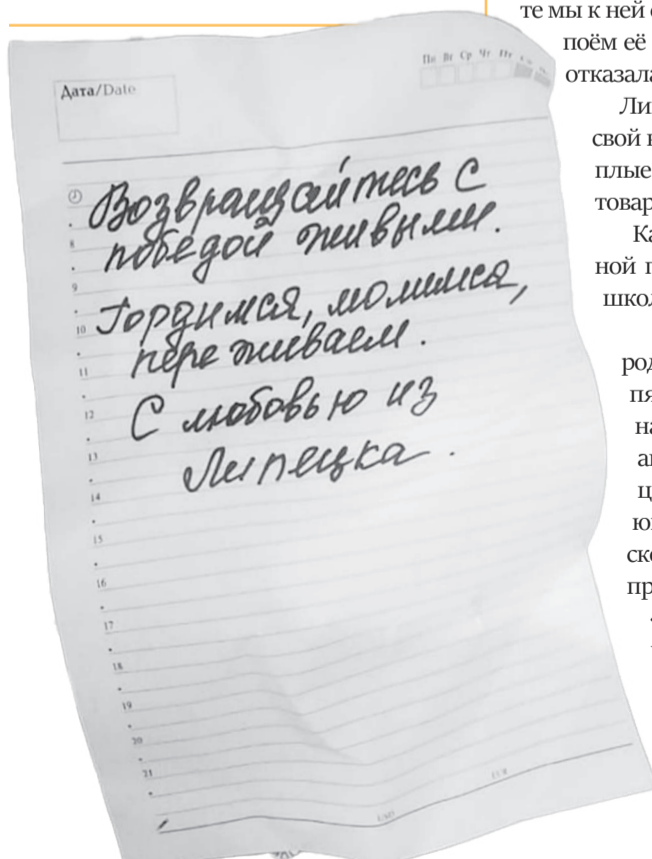 Дата/Date
Пн Вт Ср Чт Пт
Возвращайтесь с
победой живыми.
Гордимся, молимся,
переживаем.
С любовью из
Липецка.
8
9
10
11
12
13
14
15
16
17
18
19
20
21
те мы к ней
поём её
отказала
Ли
свой
плые
товар
Ка
ной
школ
род
пя
на
ск
пр